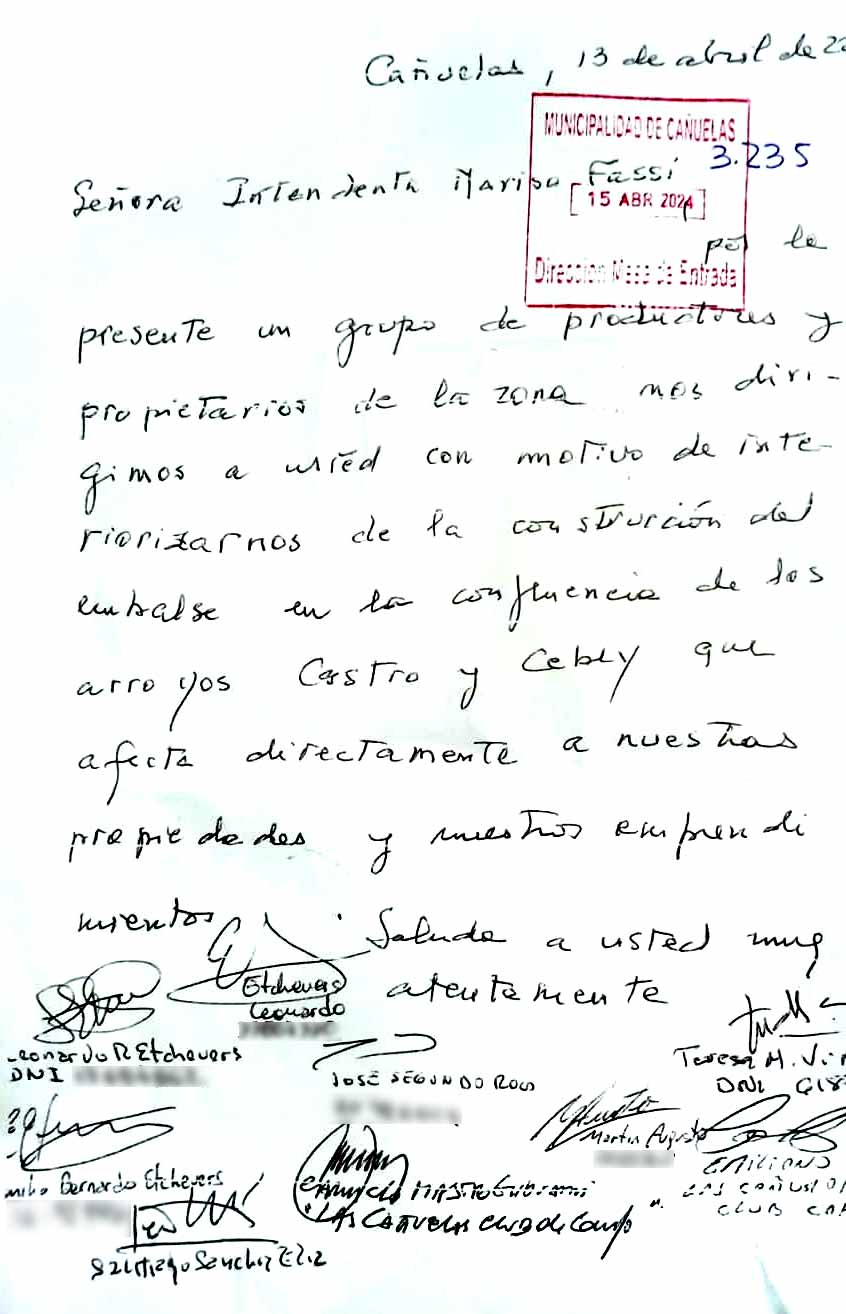 Cañuelas, 13 de abril de 20
MUNICIPALIDAD DE CAÑUELAS
3.235
Señora Intendenta Marisa Fassi
15 ABR 2024
por la
Direccion Mesa de Entrada
presente un grupo de productores y
propietarios de la zona nos diri-
gimos a usted con motivo de inte-
riorizarnos de la construcción del
embalse en la confluencia de los
arroyos Castro y Cebey que
afecta directamente a nuestras
propiedades y nuestros emprendi
mientos. Saluda a usted muy
atentamente
Etchevers
Leonardo
Leonardo R Etchevers
DNI
JOSÉ SEGUNDO ROS
Teresa M. Vi
DNI
Martin Augusto
EMILIANO
LAS CAÑUELAS
CLUB CA
Bernardo Etchevers
LAS CAÑUELAS CLUB de Campo
Santiago Sanchez Eliz